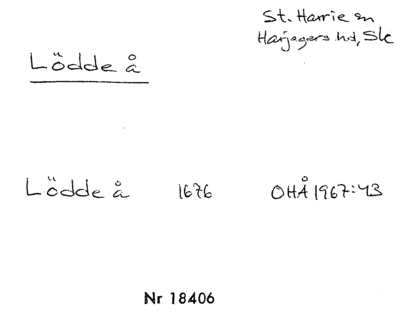 St. Harrie sn
Harjagers hd, Sk
Lödde å
Lödde å 1676 OHÅ 1967:43
Nr 18406